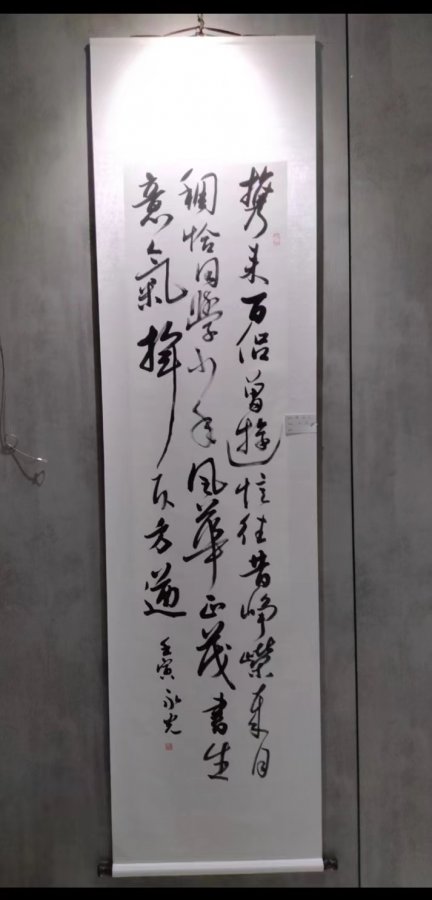 攜来百侣曾遊忆往昔峥嵘岁月
稠恰同學少年风華正茂書生
意氣揮斥方遒
壬寅永光